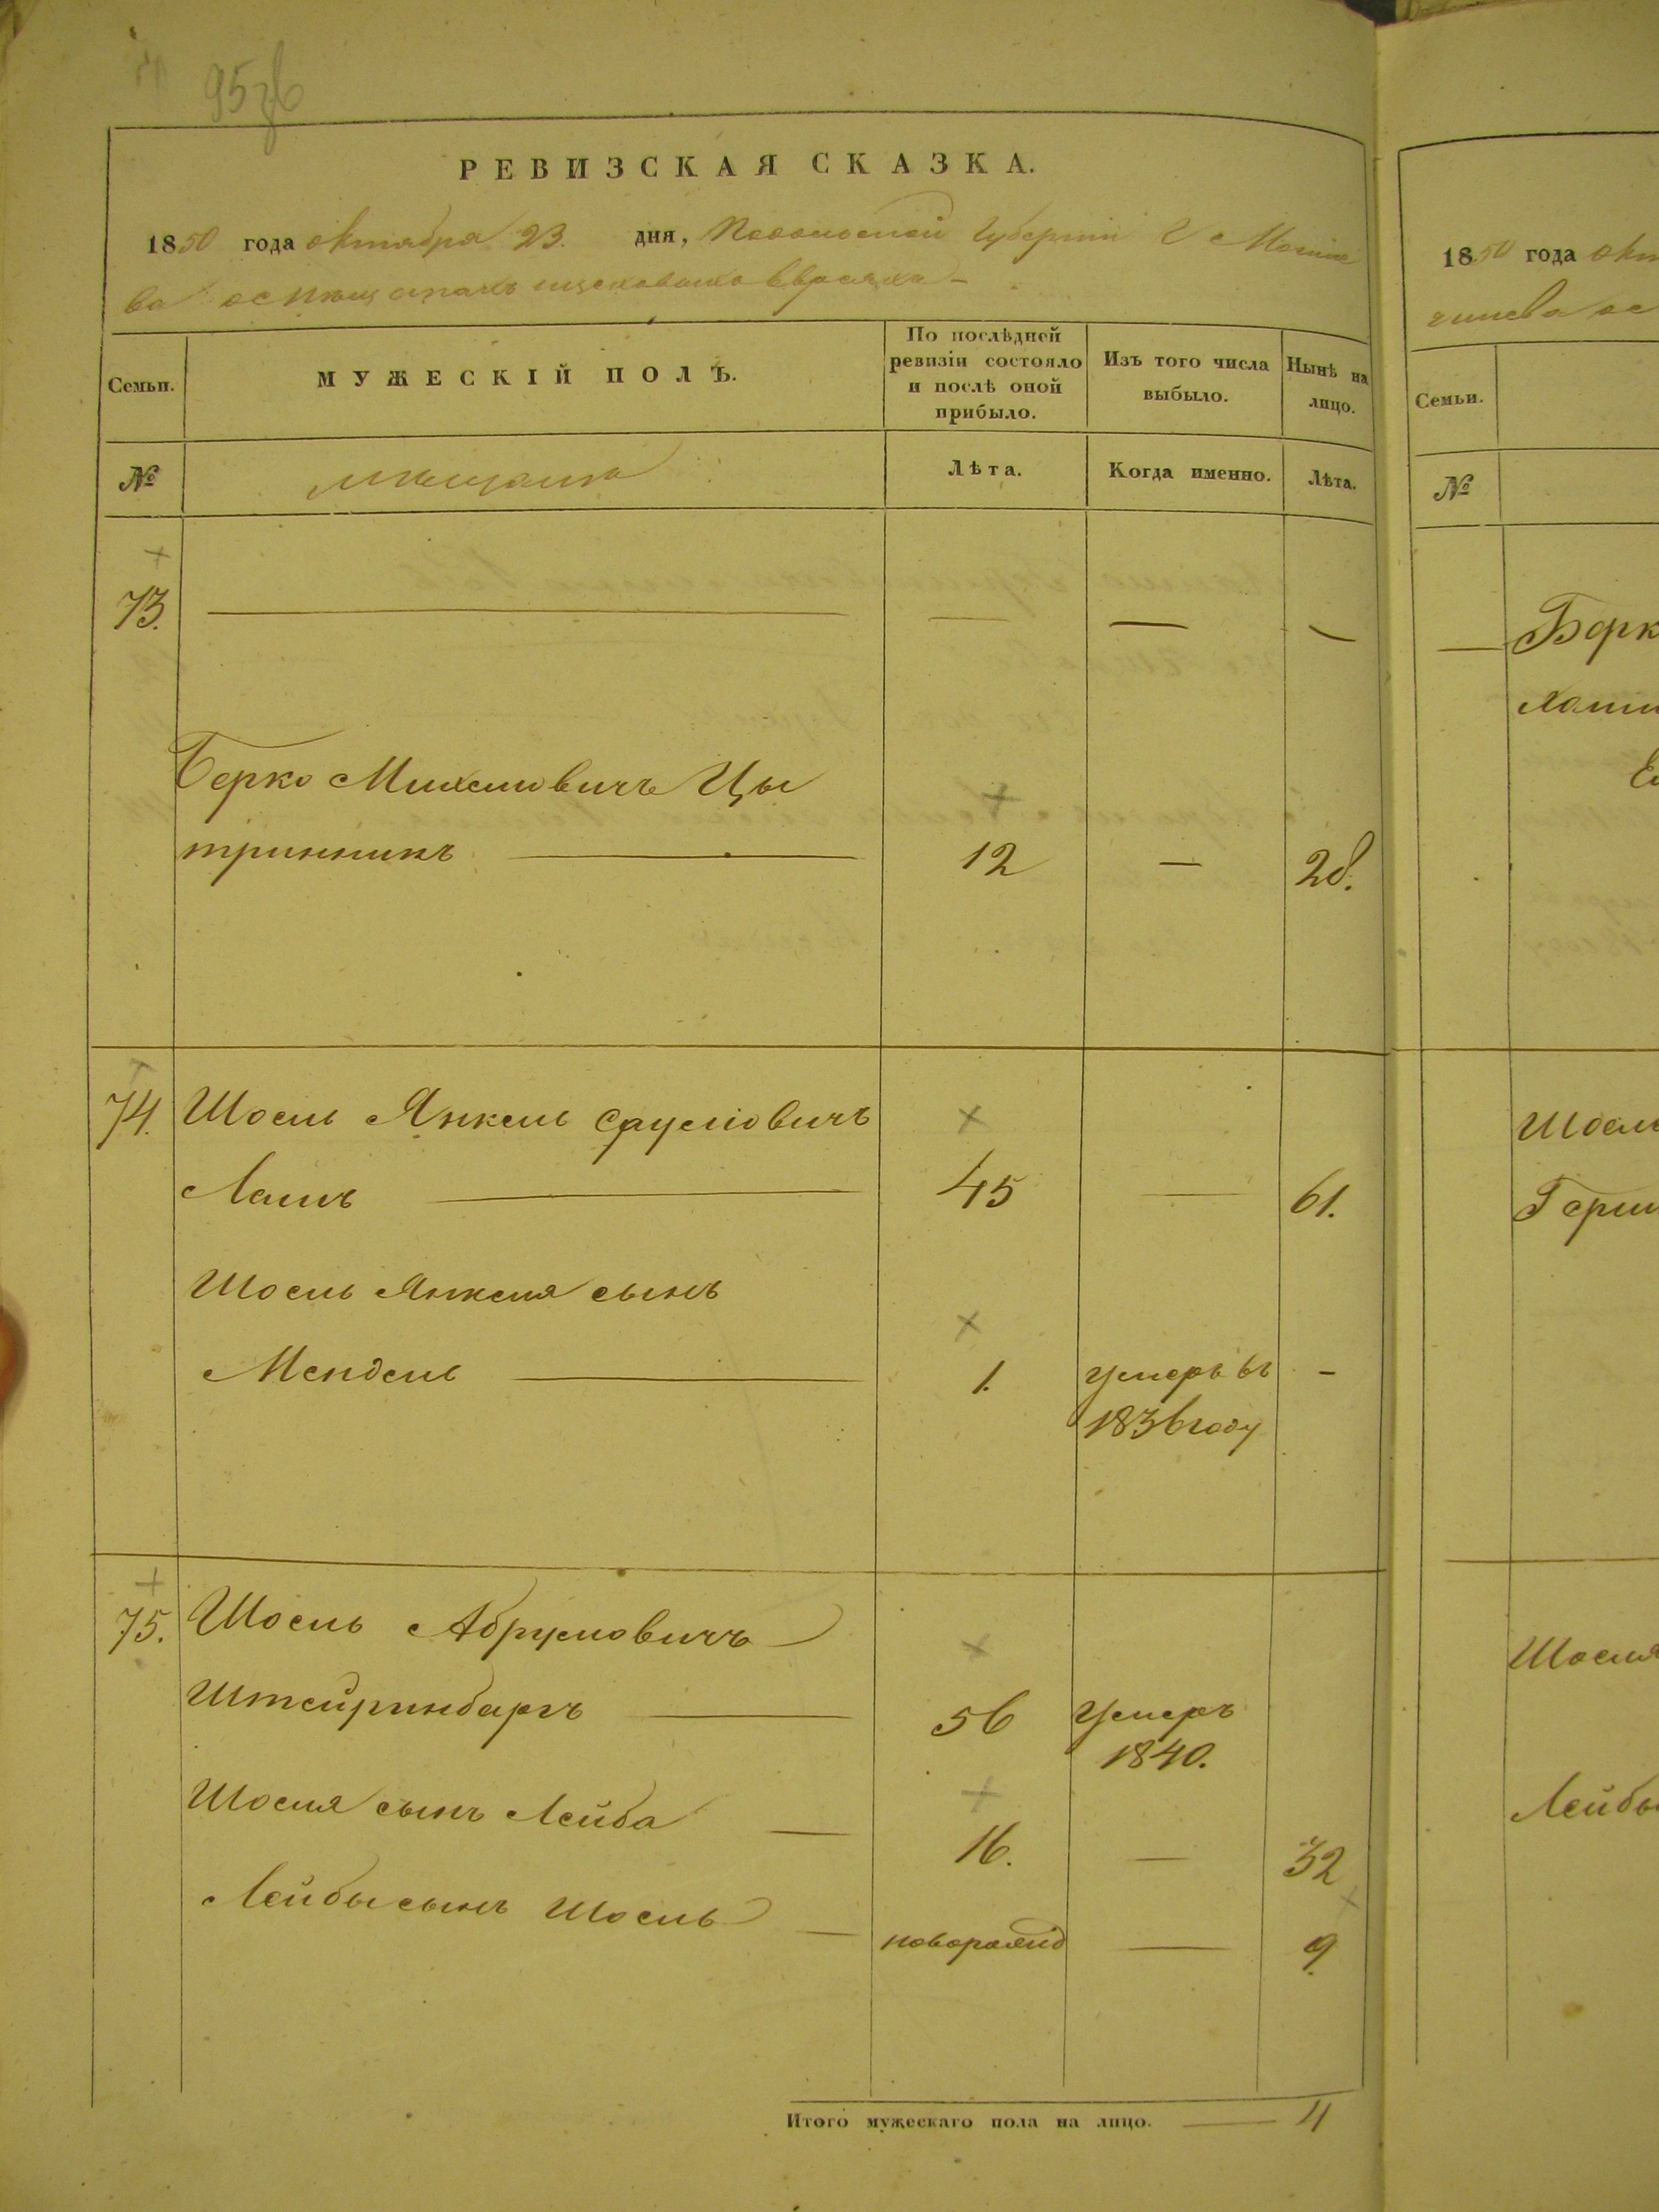 95зв
РЕВИЗСКАЯ СКАЗКА.
1850 года октября 23. дня, Подольской Губернии Г Могиле
ва о мещанахъ евреяхъ
Семьи.
МУЖЕСКІЙ ПОЛЪ.
По послѣдней ревизіи состояло и послѣ оной прибыло.
Изъ того числа выбыло.
Нынѣ на лицо.
№
мѣщане
Лѣта.
Когда именно.
Лѣта.
73. — — — —
Берко Михелиовичъ Цы
тринникъ — 12 — 28.
74. Шоель Янкель Сруліовичъ
Лашъ — 45 — 61.
Шоель Янкеля сынъ
Мендель — 1. умеръ въ -
1836 году
75. Шоель Абрумовичъ
Штейринбаргъ — 56 Умеръ
1840.
Шоеля сынъ Лейба — 16. — 32
Лейбы сынъ Шоель — новорожд — 9.
Итого мужескаго пола на лицо. — 4
1850 года окт
гилева
Семьи.
№
— Берк
Шоель
Герш
Шоеля
Лейбы